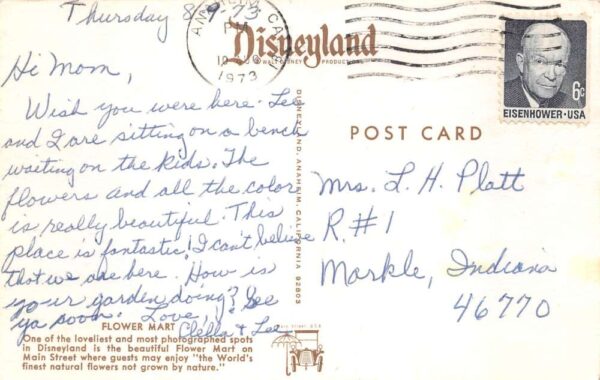 Thursday 8-9-73
Hi Mom,
Wish you were here. Lee
and I are sitting on a bench
waiting on the kids. The
flowers and all the color
is really beautiful. This
place is fantastic! I can't believe
that we are here. How is
your garden doing? See
ya soon. Love,
Clella & Lee
FLOWER MART
One of the loveliest and most photographed spots
in Disneyland is the beautiful Flower Mart on
Main Street where guests may enjoy "the World's
finest natural flowers not grown by nature."
PM
1973
Disneyland
WALT DISNEY PRODUCTIONS
DISNEYLAND, ANAHEIM, CALIFORNIA 92803
POST CARD
6c
EISENHOWER·USA
Mrs. L. H. Platt
R. #1
Markle, Indiana
46770
Main Street U.S.A.